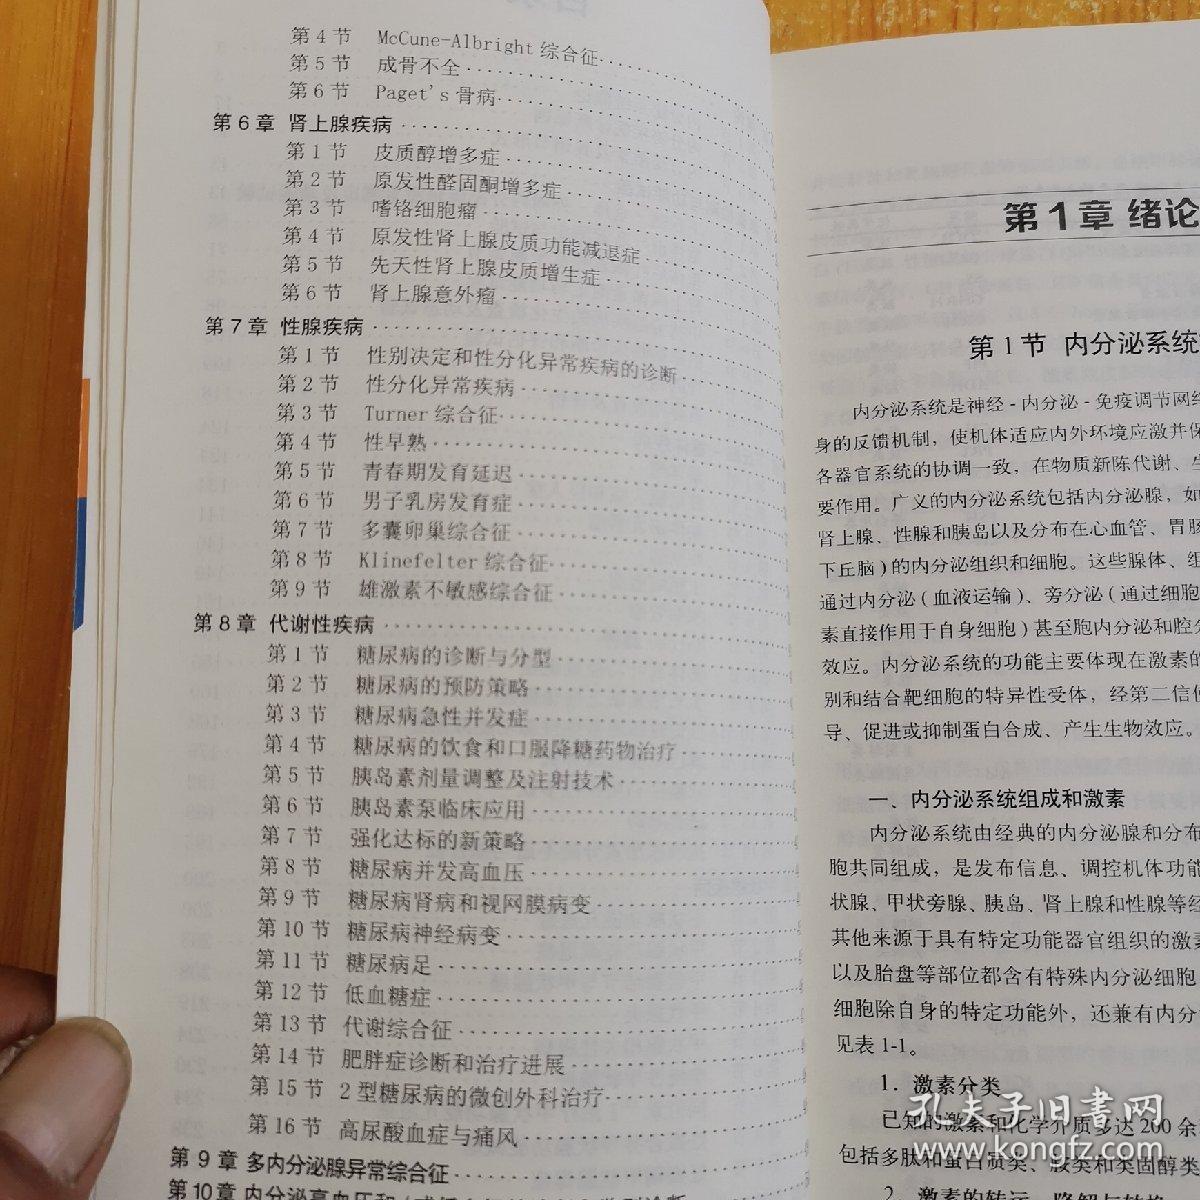 第4节 McCune-Albright 综合征
第5节 成骨不全
第6节 Paget's 骨病
第6章 肾上腺疾病
第1节 皮质醇增多症
第2节 原发性醛固酮增多症
第3节 嗜铬细胞瘤
第4节 原发性肾上腺皮质功能减退症
第5节 先天性肾上腺皮质增生症
第6节 肾上腺意外瘤
第7章 性腺疾病
第1节 性别决定和性分化异常疾病的诊断
第2节 性分化异常疾病
第3节 Turner 综合征
第4节 性早熟
第5节 青春期发育延迟
第6节 男子乳房发育症
第7节 多囊卵巢综合征
第8节 Klinefelter 综合征
第9节 雄激素不敏感综合征
第8章 代谢性疾病
第1节 糖尿病的诊断与分型
第2节 糖尿病的预防策略
第3节 糖尿病急性并发症
第4节 糖尿病的饮食和口服降糖药物治疗
第5节 胰岛素剂量调整及注射技术
第6节 胰岛素泵临床应用
第7节 强化达标的新策略
第8节 糖尿病并发高血压
第9节 糖尿病肾病和视网膜病变
第10节 糖尿病神经病变
第11节 糖尿病足
第12节 低血糖症
第13节 代谢综合征
第14节 肥胖症诊断和治疗进展
第15节 2型糖尿病的微创外科治疗
第16节 高尿酸血症与痛风
第9章 多内分泌腺异常综合征
第10章 内分泌高血压和
第1章 绪论
第1节 内分泌系统
内分泌系统是神经-内分泌-免疫调节网络
身的反馈机制，使机体适应内外环境应激并保
各器官系统的协调一致，在物质新陈代谢、生
要作用。广义的内分泌系统包括内分泌腺，如
肾上腺、性腺和胰岛以及分布在心血管、胃肠
下丘脑)的内分泌组织和细胞。这些腺体、组
通过内分泌(血液运输)、旁分泌(通过细胞
素直接作用于自身细胞)甚至胞内分泌和腔分
效应。内分泌系统的功能主要体现在激素的
别和结合靶细胞的特异性受体，经第二信使
导、促进或抑制蛋白合成、产生生物效应。
一、内分泌系统组成和激素
内分泌系统由经典的内分泌腺和分布
胞共同组成，是发布信息、调控机体功能
状腺、甲状旁腺、胰岛、肾上腺和性腺等经
其他来源于具有特定功能器官组织的激素
以及胎盘等部位都含有特殊内分泌细胞
细胞除自身的特定功能外，还兼有内分
见表1-1。
1. 激素分类
已知的激素和化学介质多达200余
包括多肽和蛋白质类、胺类和类固醇类
2. 激素的转运、降解与转换
孔夫子旧书网
www.kongfz.com